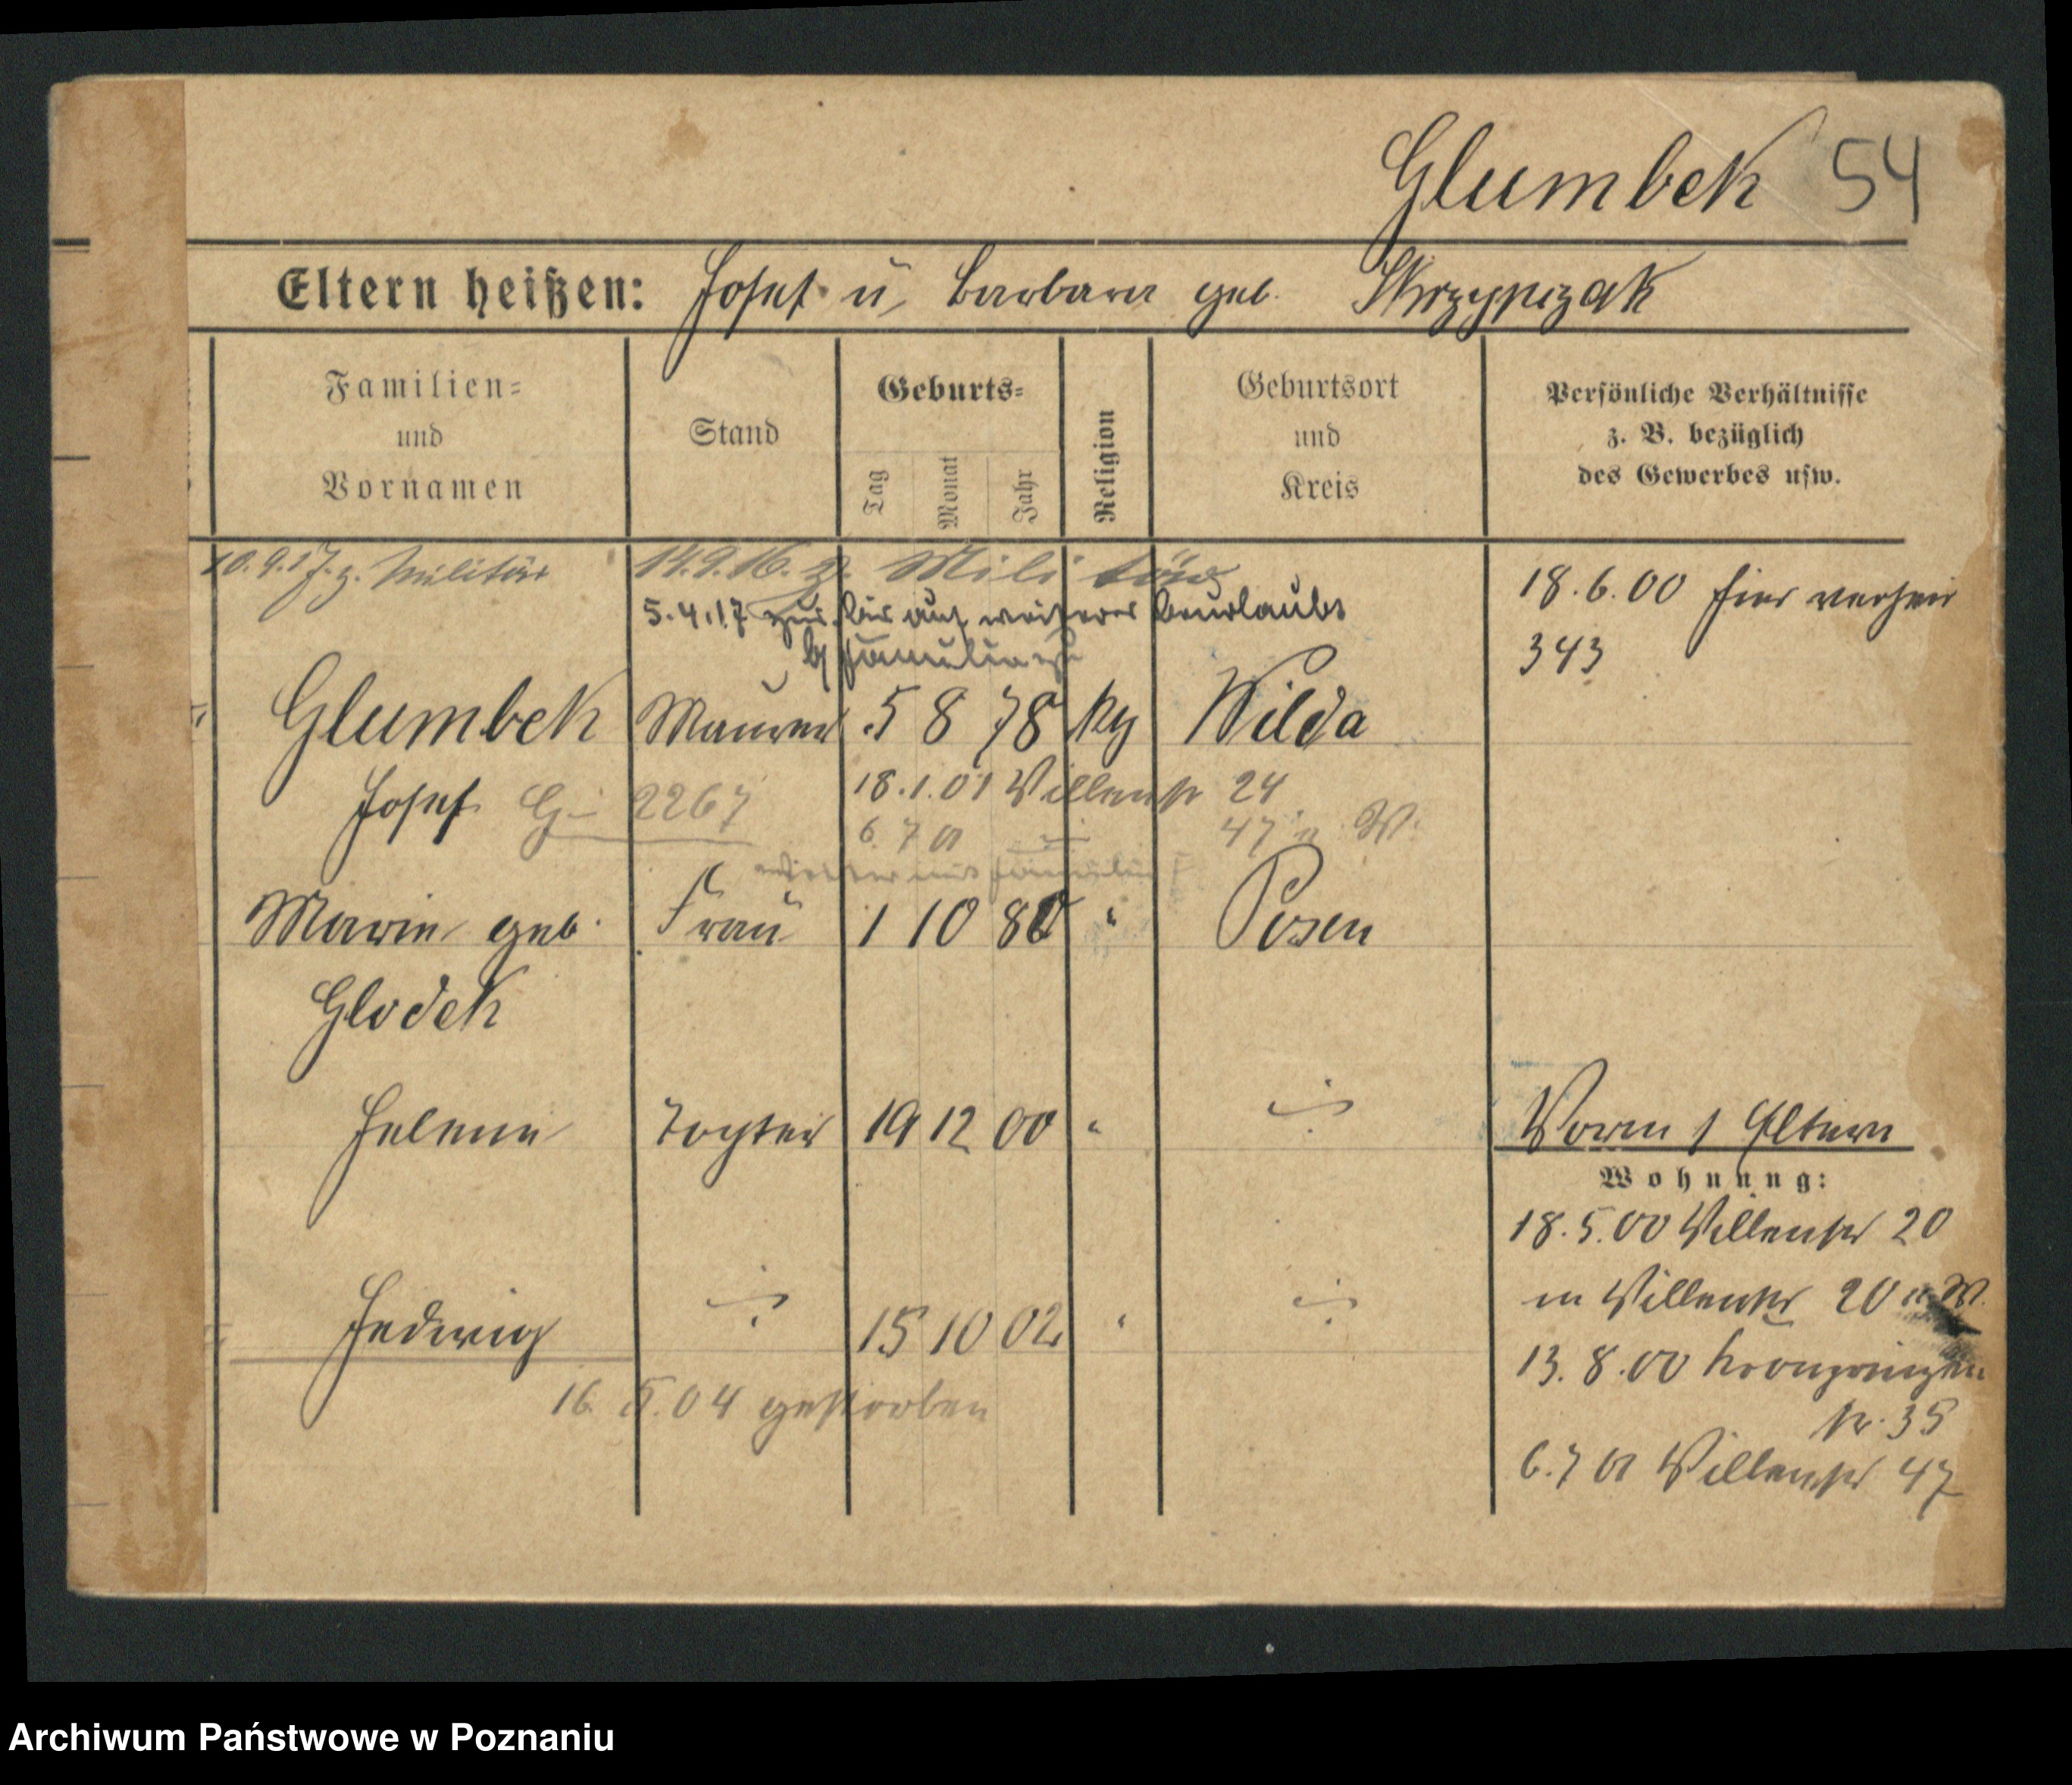 Glumbek 54
Eltern heißen: Josef u. Barbara geb. Skrzypczak
Familien= und Vornamen
Stand
Geburts=
Tag Monat Jahr
Religion
Geburtsort und Kreis
Persönliche Verhältnisse
z. B. bezüglich
des Gewerbes usw.
10.9.17. z. Militär 14.9.16. z. Militär
5.4.17 zur. bis auf weiteres beurlaubt
18.6.00 hier verheir
343
Glumbek Maurer 5 8 78 kg Wilda
18.1.01 Villenstr 24
Josef G 2267
6. 7 01 47 n. W.
Marie geb. Frau 1 10 80 " Posen
Glodek
Helene Tochter 19 12 00 " ÷
Worin s Eltern
Wohnung:
18.5.00 Villenstr 20
m Villenstr 20 n. W.
Hedwig ÷ 15 10 02 " ÷
13.8.00 Kronprinzen
str. 35
16. 5. 04 gestorben
6.7 01 Villenstr 47
Archiwum Państwowe w Poznaniu